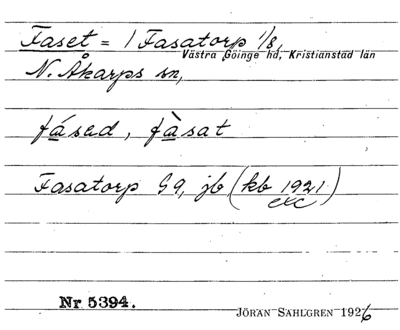 Faset = 1 Fasatorp 1/8,
Västra Göinge hd, Kristianstad län
N. Åkarps sn,
fásad, fàsat
Fasatorp G9, jb (kb 1921)
exc
Nr 5394.
JÖRAN SAHLGREN 1926